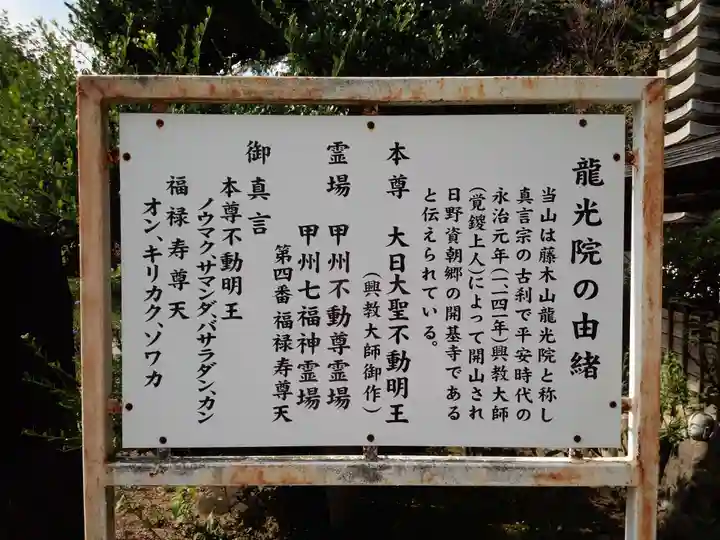 龍光院の由緒
当山は藤木山龍光院と称し
真言宗の古刹で平安時代の
永治元年(一一四一年)興教大師
(覚鑁上人)によって開山され
日野資朝郷の開基寺である
と伝えられている。
本尊 大日大聖不動明王
(興教大師御作)
霊場 甲州不動尊霊場
甲州七福神霊場
第四番福禄寿尊天
御真言
本尊不動明王
ノウマク、サマンダ、バサラダン、カン
福禄寿尊天
オン、キリカク、ソワカ